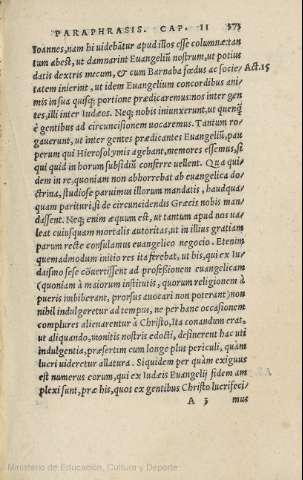 PARAPHRASIS. CAP. II 373
Ioannes, nam hi videbãtur apud illos esse columnæ: tan
tum abest, ut damnarint Euangeliũ nostrum, ut potius
datis dextris mecum, & cum Barnaba fœdus ac socie/ Act.15
tatem inierint, ut idem Euangelium concordibus ani-
mis in sua quisq; portione prædicaremus: nos inter gen
tes, illi inter Iudæos. Neq; nobis iniunxerunt, ut quenq̃
è gentibus ad circuncisionem uocaremus. Tantum ro-
gauerunt, ut inter gentes prædicantes Euangeliũ, pau
perum qui Hierosolymis agebant, memores essemus, si
qui quid in horum subsidiũ conferre uellent. Qua qui-
dem in re, quoniam non abhorrebat ab euangelica do-
ctrina, studiose paruimus illorum mandatis, haudqua-
quam parituri, si de circuncidendis Græcis nobis man-
dassent. Neq; enim æquum est, ut tantum apud nos ua-
leat cuiusquam mortalis autoritas, ut in illius gratiam
parum recte consulamus euangelico negocio. Etenim
quemadmodum initio res ita ferebat, ut his, qui ex Iu-
daismo sese cõuertissent ad professionem euangelicam
(quoniam à maiorum institutis, quorum religionem à
pueris imbiberant, prorsus auocari non poterant) non
nihil indulgeretur ad tempus, ne per hanc occasionem
complures alienarentur à Christo, ita conandum erat,
ut aliquando, monitis nostris edocti, desinerent hac uti
indulgentia, præsertim cum longe plus periculi, quàm
lucri uideretur allatura. Siquidem per quàm exiguus
est numerus eorum, qui ex Iudæis Euangelij fidem am
plexi sunt, præ his, quos ex gentibus Christo lucrifeci/
A 3 mus
Ministerio de Educación, Cultura y Deporte